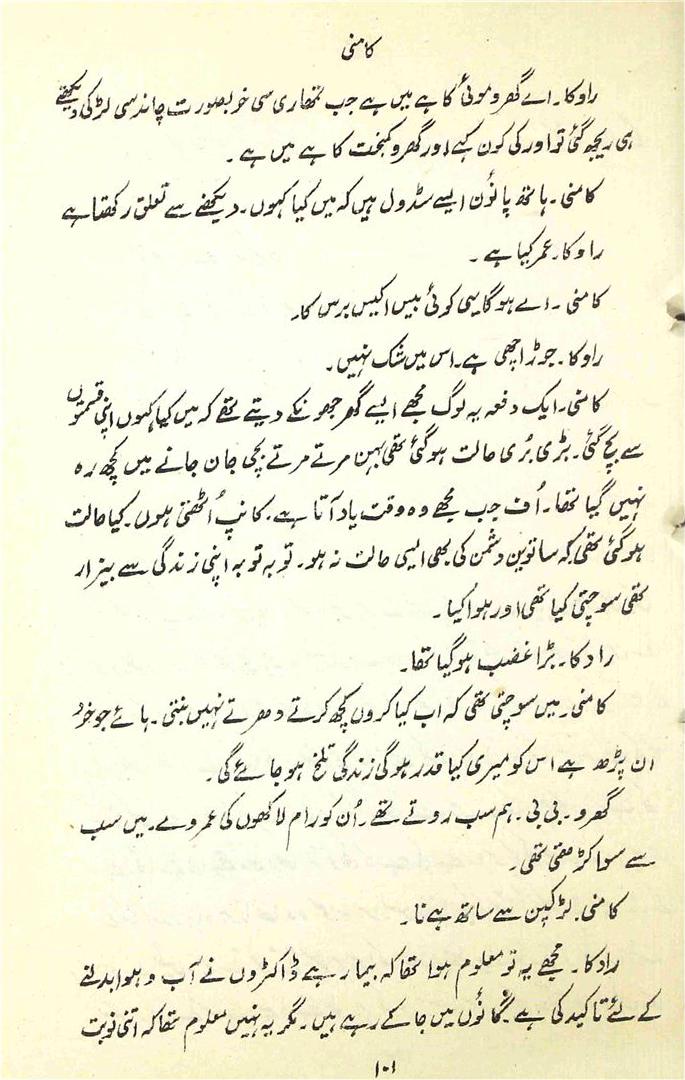 کامنی
راوکا۔ اے گھرو موئی کاہے میں ہے جب تمھاری سی خوبصورت چاند سی لڑکی دیکھتے
ہی ریجھ گئی تو اور کی کون کہے اور گھرو کمبخت کاہے میں ہے۔
کامنی۔ ہاتھ پانؤں ایسے سڈول ہیں کہ میں کیا کہوں۔ دیکھنے سے تعلق رکھتا ہے
راوکا۔ عمر کیا ہے۔
کامنی۔ اے ہوگا یہی کوئی بیس اکیس برس کا۔
راوکا۔ جوڑ اچھی ہے۔ اس میں شک نہیں۔
کامنی۔ ایک دفعہ یہ لوگ مجھے ایسے گھر جھونکے دیتے تھے کہ میں کیا کہوں اپنی قسمتوں
سے بچ گئی۔ بڑی بُری حالت ہوگئی تھی بہن مرتے مرتے بچی جان جانے میں کچھ رہ
نہیں گیا تھا۔ اُف جب مجھے وہ وقت یاد آتا ہے۔ کانپ اُٹھتی ہوں۔ کیا حالت
ہوگئی تھی کہ ساتویں دشمن کی بھی ایسی حالت نہ ہو۔ توبہ توبہ اپنی زندگی سے بیزار
تھی سوچتی کیا تھی اور ہوا کیا۔
رادکا۔ بڑا غضب ہوگیا تھا۔
کامنی۔ میں سوچتی تھی کہ اب کیا کروں کچھ کرتے دھرتے نہیں بنتی۔ ہائے جو خود
ان پڑھ ہے اس کو میری کیا قدر ہوگی زندگی تلخ ہو جائے گی۔
گھرو۔ بی بی۔ ہم سب روتے تھے۔ اُن کو رام لاکھوں کی عمر دے۔ میں سب
سے سوا کڑھتی تھی۔
کامنی۔ لڑکپن سے ساتھ ہے نا۔
رادکا۔ مجھے یہ تو معلوم ہوا تھا کہ بیمار ہے ڈاکٹروں نے آب و ہوا بدلنے
کے لئے تاکید کی ہے گانؤں میں جا کے رہے ہیں۔ مگر یہ نہیں معلوم تھا کہ اتنی نوبت
۱۰۱